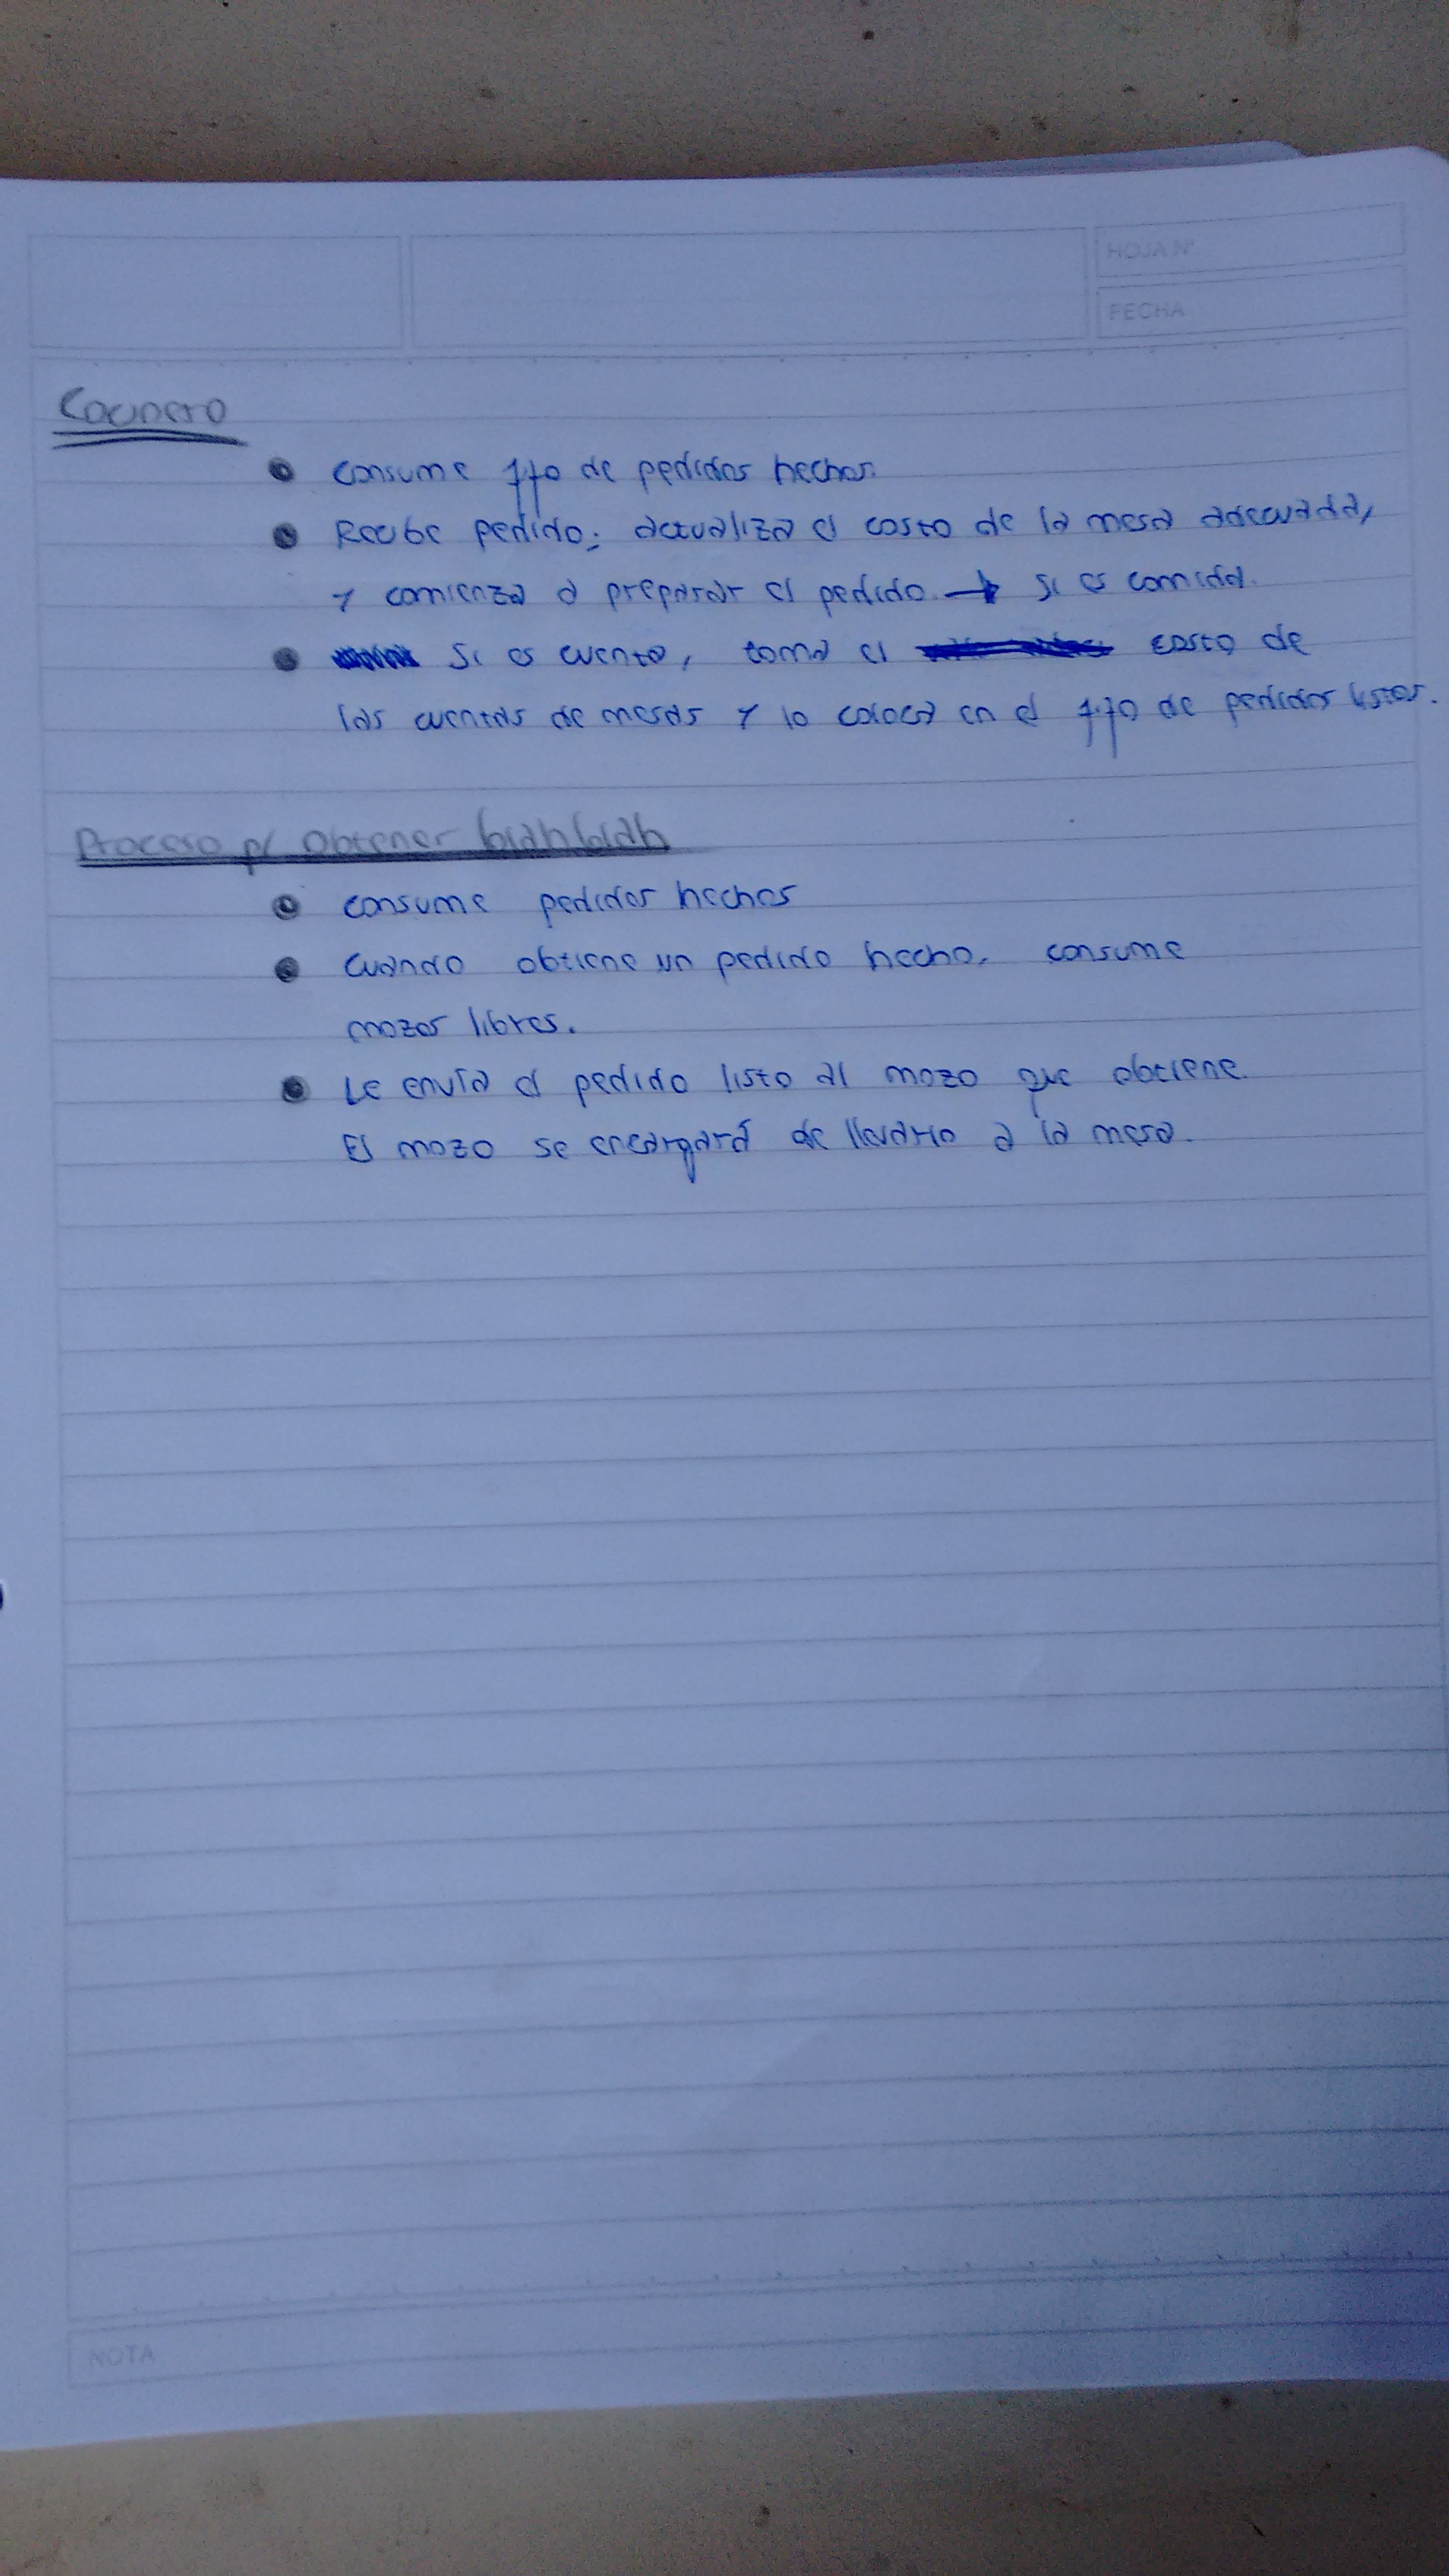 HOJA Nº
FECHA
Cocinero
• Consume fifo de pedidos hechos.
• Recibe pedido; actualiza el costo de la mesa adecuada,
y comienza a preparar el pedido → si es comida.
• Si es cuenta, toma el costo de
las cuentas de mesas y lo coloca en el fifo de pedidos listos.
Proceso p/ obtener blahblah
• consume pedidos hechos
• Cuando obtiene un pedido hecho, consume
mozos libres.
• Le envía el pedido listo al mozo que obtiene.
El mozo se encargará de llevarlo a la mesa.
NOTA